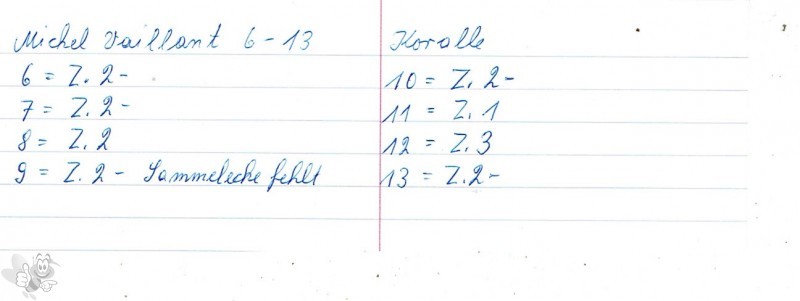 Michel Vaillant 6-13 Koralle
6 = Z. 2-
7 = Z. 2-
8 = Z. 2
9 = Z. 2- Sammelecke fehlt
10 = Z. 2-
11 = Z. 1
12 = Z. 3
13 = Z. 2-